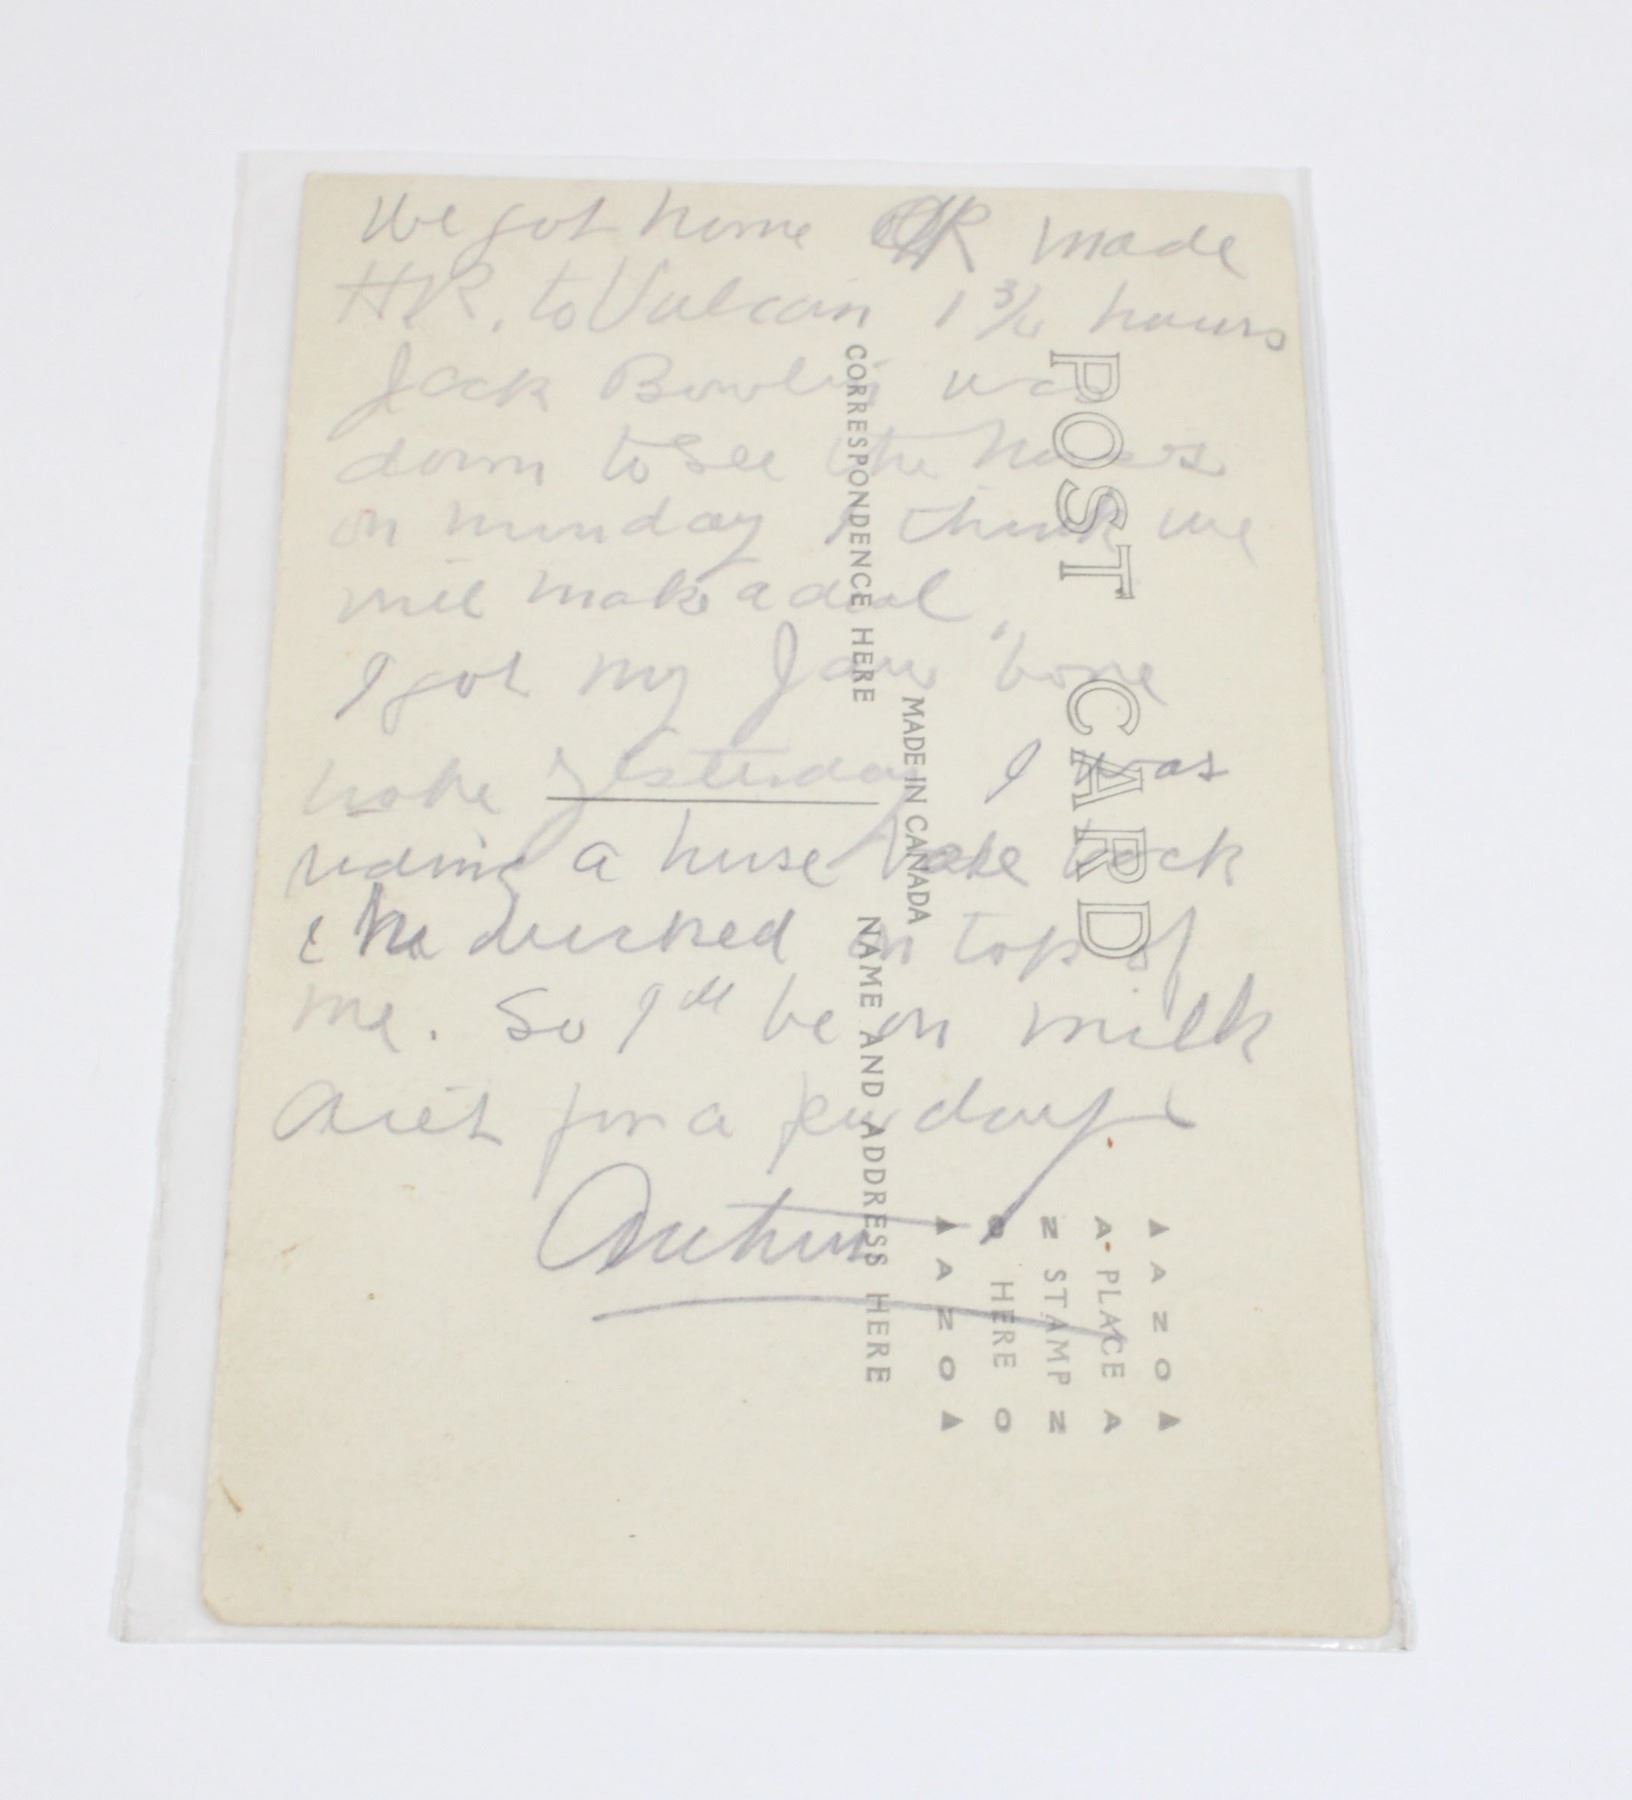 We got home OK made
H.R. to Vulcan 1 3/4 hours
Jack Bowlin was
down to see the horses
on munday I think we
will make a deal.
I got my Jaw bone
broke yesterday I was
riding a horse bare back
& he ducked on top of
me. So I'll be on milk
diet for a few days
Arthur
POST CARD
CORRESPONDENCE HERE
MADE IN CANADA
NAME AND ADDRESS HERE
▲ A Z O ▲
A PLACE A
Z STAMP Z
O HERE O
▲ A Z O ▲